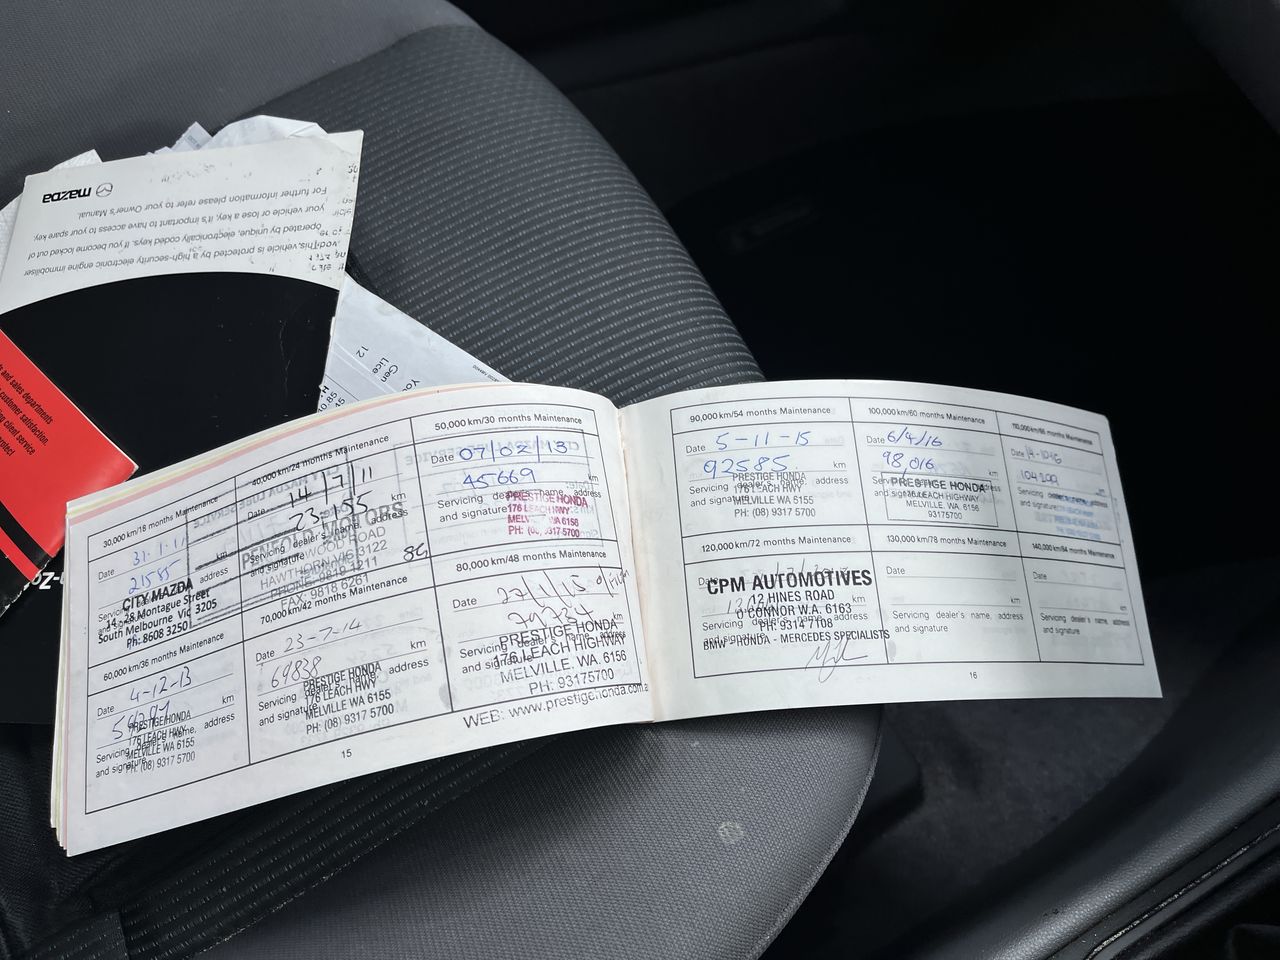 mazda
For further information please refer to your Owner's Manual.
your vehicle or lose a key, it's important to have access to your spare key.
operated by unique, electronically coded keys. If you become locked out of
This vehicle is protected by a high-security electronic engine immobiliser
s and sales departments
customer satisfaction.
ng client service
Gen
Lice
12
30,000 km/18 months Maintenance
Date 31.1.11
21585
address
CITY MAZDA
14 - 28 Montague Street
South Melbourne Vic 3205
Ph: 8608 3250
40,000 km/24 months Maintenance
Date 14/7/11
km
Servicing dealer's name, address
and signature
MOTORS
WOOD ROAD
HAWTHORN VIC 3122
PHONE: 9819 1211
FAX: 9818 6261
50,000 km/30 months Maintenance
Date 07/02/13
45669 km
Servicing dealer's name, address
and signature
PRESTIGE HONDA
176 LEACH HWY
MELV WA 6156
PH: (08) 9317 5700
60,000 km/36 months Maintenance
Date 4-12-13
km
Servicing dealer's name, address
and signature
PRESTIGE HONDA
176 LEACH HWY
MELVILLE WA 6155
PH: (08) 9317 5700
70,000 km/42 months Maintenance
Date 23-7-14
69838 km
Servicing dealer's name, address
and signature
PRESTIGE HONDA
176 LEACH HWY
MELVILLE WA 6155
PH: (08) 9317 5700
80,000 km/48 months Maintenance
Date 27/1/15
km
Servicing dealer's name, address
and signature
PRESTIGE HONDA
176 LEACH HIGHWAY
MELVILLE, WA. 6156
PH: 93175700
WEB: www.prestigehonda.com.a
15
90,000 km/54 months Maintenance
Date 5-11-15
92585. km
Servicing dealer's name, address
and signature
PRESTIGE HONDA
176 LEACH HWY
MELVILLE WA 6155
PH: (08) 9317 5700
100,000 km/60 months Maintenance
Date 6/4/16
98,016 km
Servicing dealer's name, address
and signature
PRESTIGE HONDA
176 LEACH HIGHWAY
MELVILLE, WA, 6156
93175700
110,000 km/66 months Maintenance
Date
104200 km
Servicing dealer's name, address
and signature
120,000 km/72 months Maintenance
Date
km
Servicing dealer's name, address
and signature
CPM AUTOMOTIVES
12 HINES ROAD
O'CONNOR W.A. 6163
PH: 9314 7108
BMW - HONDA - MERCEDES SPECIALISTS
130,000 km/78 months Maintenance
Date
km
Servicing dealer's name, address
and signature
140,000 km/84 months Maintenance
Date
km
Servicing dealer's name, address
and signature
16